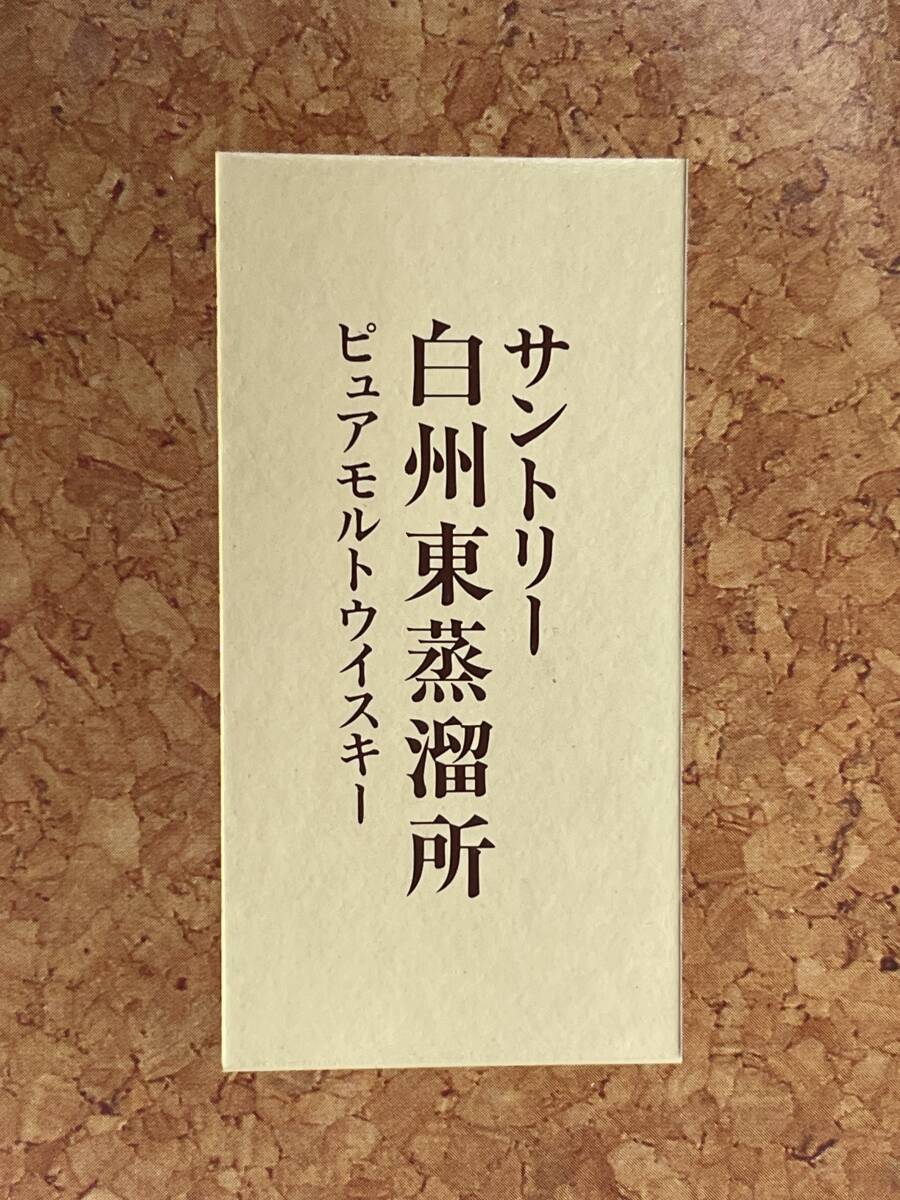 サントリー
白州東蒸溜所
ピュアモルトウイスキー